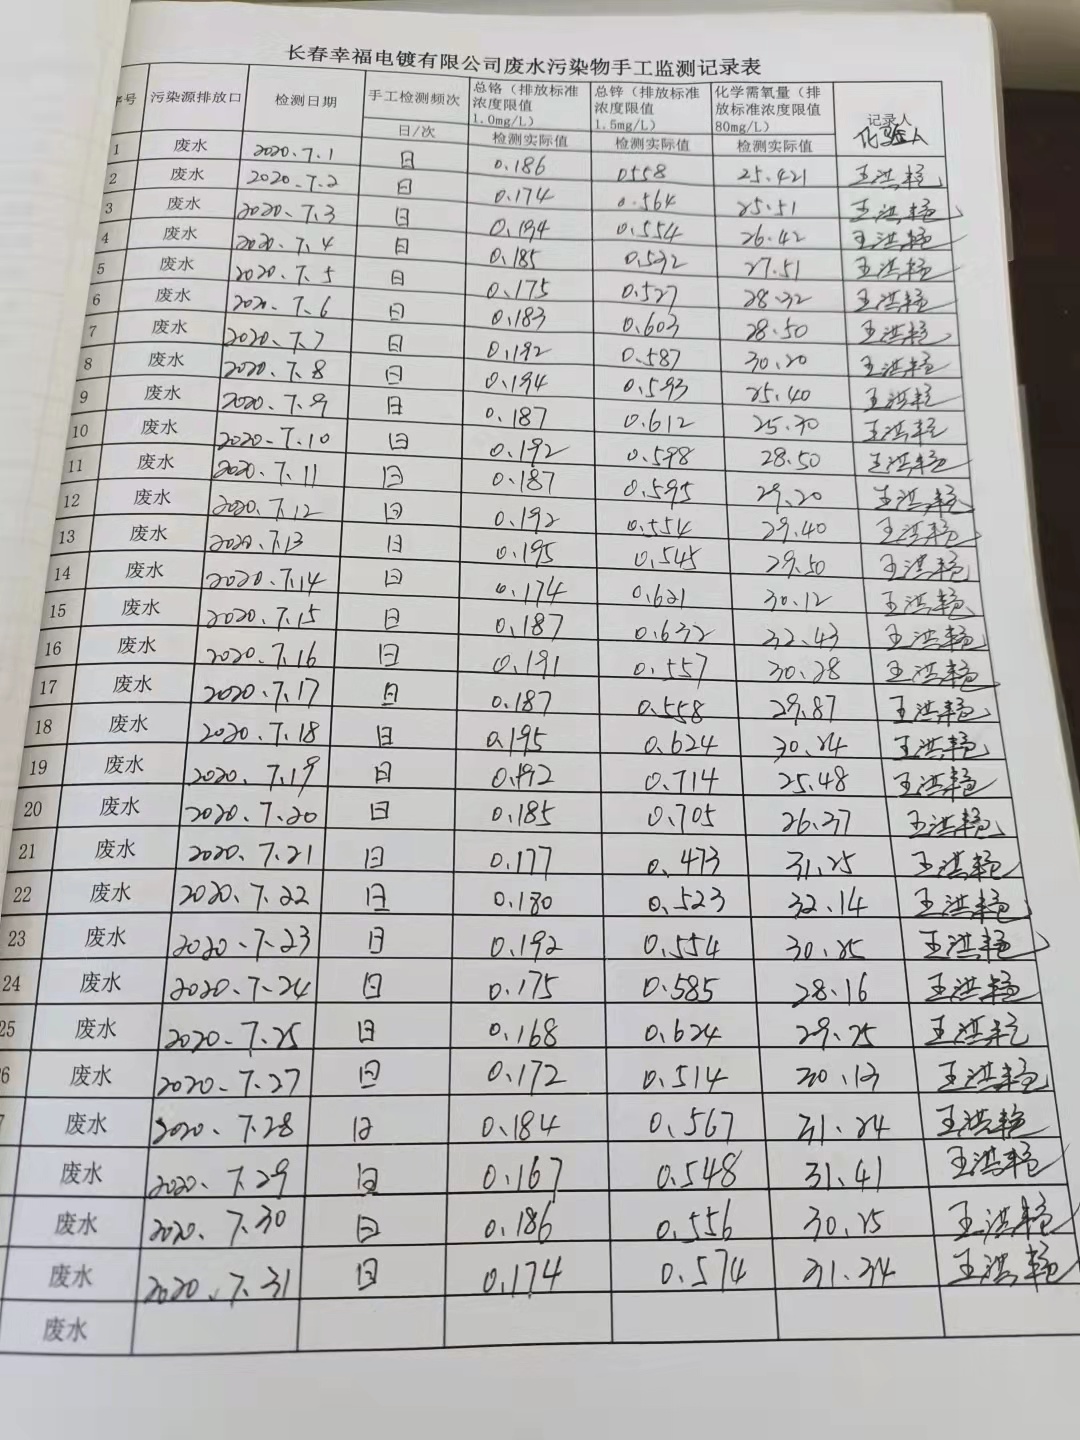 长春幸福电镀有限公司废水污染物手工监测记录表
序号 污染源排放口 检测日期 手工检测频次 总铬（排放标准浓度限值1.0mg/L） 总锌（排放标准浓度限值1.5mg/L） 化学需氧量（排放标准浓度限值80mg/L） 记录人
日/次 检测实际值 检测实际值 检测实际值 化验人
1 废水 2020.7.1 日 0.186 0558 25.421 王洪艳
2 废水 2020.7.2 日 0.174 0.564 25.51 王洪艳
3 废水 2020.7.3 日 0.194 0.554 26.42 王洪艳
4 废水 2020.7.4 日 0.185 0.532 27.51 王洪艳
5 废水 2020.7.5 日 0.175 0.527 28.32 王洪艳
6 废水 2020.7.6 日 0.183 0.603 28.50 王洪艳
7 废水 2020.7.7 日 0.192 0.587 30.20 王洪艳
8 废水 2020.7.8 日 0.194 0.593 25.40 王洪艳
9 废水 2020.7.9 日 0.187 0.612 25.30 王洪艳
10 废水 2020.7.10 日 0.192 0.598 28.50 王洪艳
11 废水 2020.7.11 日 0.187 0.595 29.20 王洪艳
12 废水 2020.7.12 日 0.192 0.554 29.40 王洪艳
13 废水 2020.7.13 日 0.195 0.545 29.50 王洪艳
14 废水 2020.7.14 日 0.174 0.621 30.12 王洪艳
15 废水 2020.7.15 日 0.187 0.632 32.43 王洪艳
16 废水 2020.7.16 日 0.191 0.557 30.28 王洪艳
17 废水 2020.7.17 日 0.187 0.558 29.87 王洪艳
18 废水 2020.7.18 日 0.195 0.624 30.24 王洪艳
19 废水 2020.7.19 日 0.192 0.714 25.48 王洪艳
20 废水 2020.7.20 日 0.185 0.705 26.37 王洪艳
21 废水 2020.7.21 日 0.177 0.473 31.25 王洪艳
22 废水 2020.7.22 日 0.180 0.523 32.14 王洪艳
23 废水 2020.7.23 日 0.192 0.554 30.25 王洪艳
24 废水 2020.7.24 日 0.175 0.585 28.16 王洪艳
25 废水 2020.7.25 日 0.168 0.624 29.25 王洪艳
6 废水 2020.7.27 日 0.172 0.514 30.13 王洪艳
7 废水 2020.7.28 日 0.184 0.567 31.24 王洪艳
废水 2020.7.29 日 0.167 0.548 31.41 王洪艳
废水 2020.7.30 日 0.186 0.556 30.25 王洪艳
废水 2020.7.31 日 0.174 0.574 31.34 王洪艳
废水